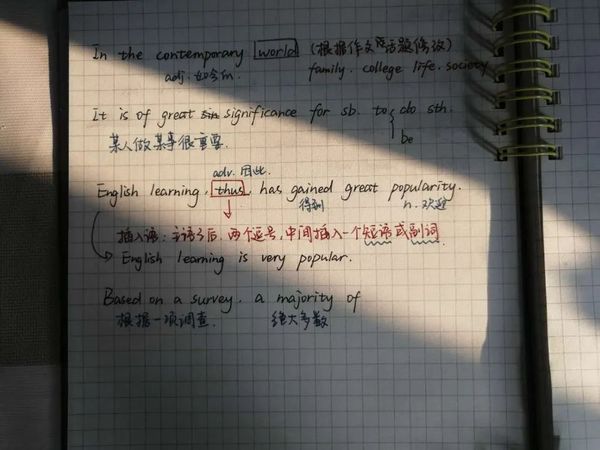 In the contemporary world (根据作文主题修改)
adj. 如今的 family. college life. society
It is of great significance for sb. to do sth.
某人做某事很重要. be
adv. 因此.
English learning, thus, has gained great popularity.
得到 n. 欢迎
插入语: 主语之后, 两个逗号, 中间插入一个短语或副词.
English learning is very popular.
Based on a survey, a majority of
根据一项调查. 绝大多数